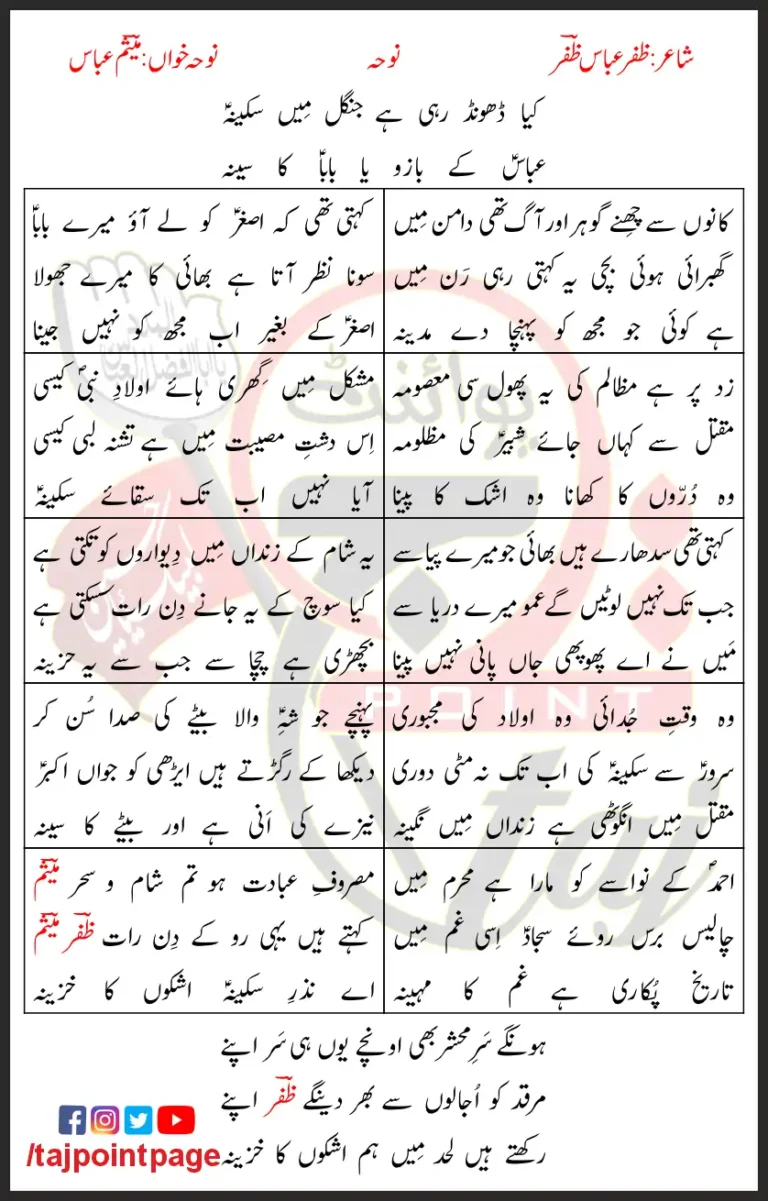 شاعر: ظفر عباس ظفرؔ
نوحہ
نوحہ خواں: میثمؔ عباس
کیا ڈھونڈ رہی ہے جنگل مِیں سکینہؑ
عباسؑ کے بازو یا باباؑ کا سینہ
کانوں سے چِھنے گوہر اور آگ تھی دامن مِیں
گھبرائی ہوئی بچی یہ کہتی رہی رَن مِیں
ہے کوئی جو مجھ کو پہنچا دے مدینہ
کہتی تھی کہ اصغرؑ کو لے آؤ میرے باباؑ
سونا نظر آتا ہے بھائی کا میرے جھولا
اصغرؑ کے بغیر اب مجھ کو نہیں جینا
زد پر ہے مظالم کی یہ پھول سی معصومہ
مقتل سے کہاں جائے شبیرؑ کی مظلومہ
وہ دُرّوں کا کھانا وہ اشک کا پینا
مشکل مِیں گِھری ہائے اولادِ نبیؐ کیسی
اِس دشتِ مصیبت مِیں ہے تشنہ لبی کیسی
آیا نہیں اب تک سقائے سکینہؑ
کہتی تھی سدھارے ہیں بھائی جو میرے پیاسے
جب تک نہیں لوٹیں گے عمو میرے دریا سے
مَیں نے اے پھوپھی جاں پانی نہیں پینا
یہ شام کے زنداں مِیں دِیواروں کو تکتی ہے
کیا سوچ کے یہ جانے دِن رات سسکتی ہے
بچھڑی ہے چچا سے جب سے یہ حزینہ
وہ وقتِ جُدائی وہ اولاد کی مجبوری
سرورؑ سے سکینہؑ کی اب تک نہ مٹی دوری
مقتل مِیں انگوٹھی ہے زنداں مِیں نگینہ
پہنچے جو شہِؑ والا بیٹے کی صدا سُن کر
دیکھا کے رگڑتے ہیں ایڑھی کو جواں اکبرؑ
نیزے کی اَنی ہے اور بیٹے کا سینہ
احمدؐ کے نواسے کو مارا ہے محرم مِیں
چالیس برس روئے سجادؑ اِسی غم مِیں
تاریخ پُکاری ہے غم کا مہینہ
مصروفِ عبادت ہو تم شام و سحر میثمؔ
کہتے ہیں یہی رو کے دِن رات ظفرؔ میثمؔ
اے نذرِ سکینہؑ اشکوں کا خزینہ
ہونگے سَرِ محشر بھی اونچے یوں ہی سَر اپنے
مرقد کو اُجالوں سے بھر دینگے ظفرؔ اپنے
رکھتے ہیں لحد مِیں ہم اشکوں کا خزینہ
/tajpointpage
پوائنٹ
تاج
POINT
taj